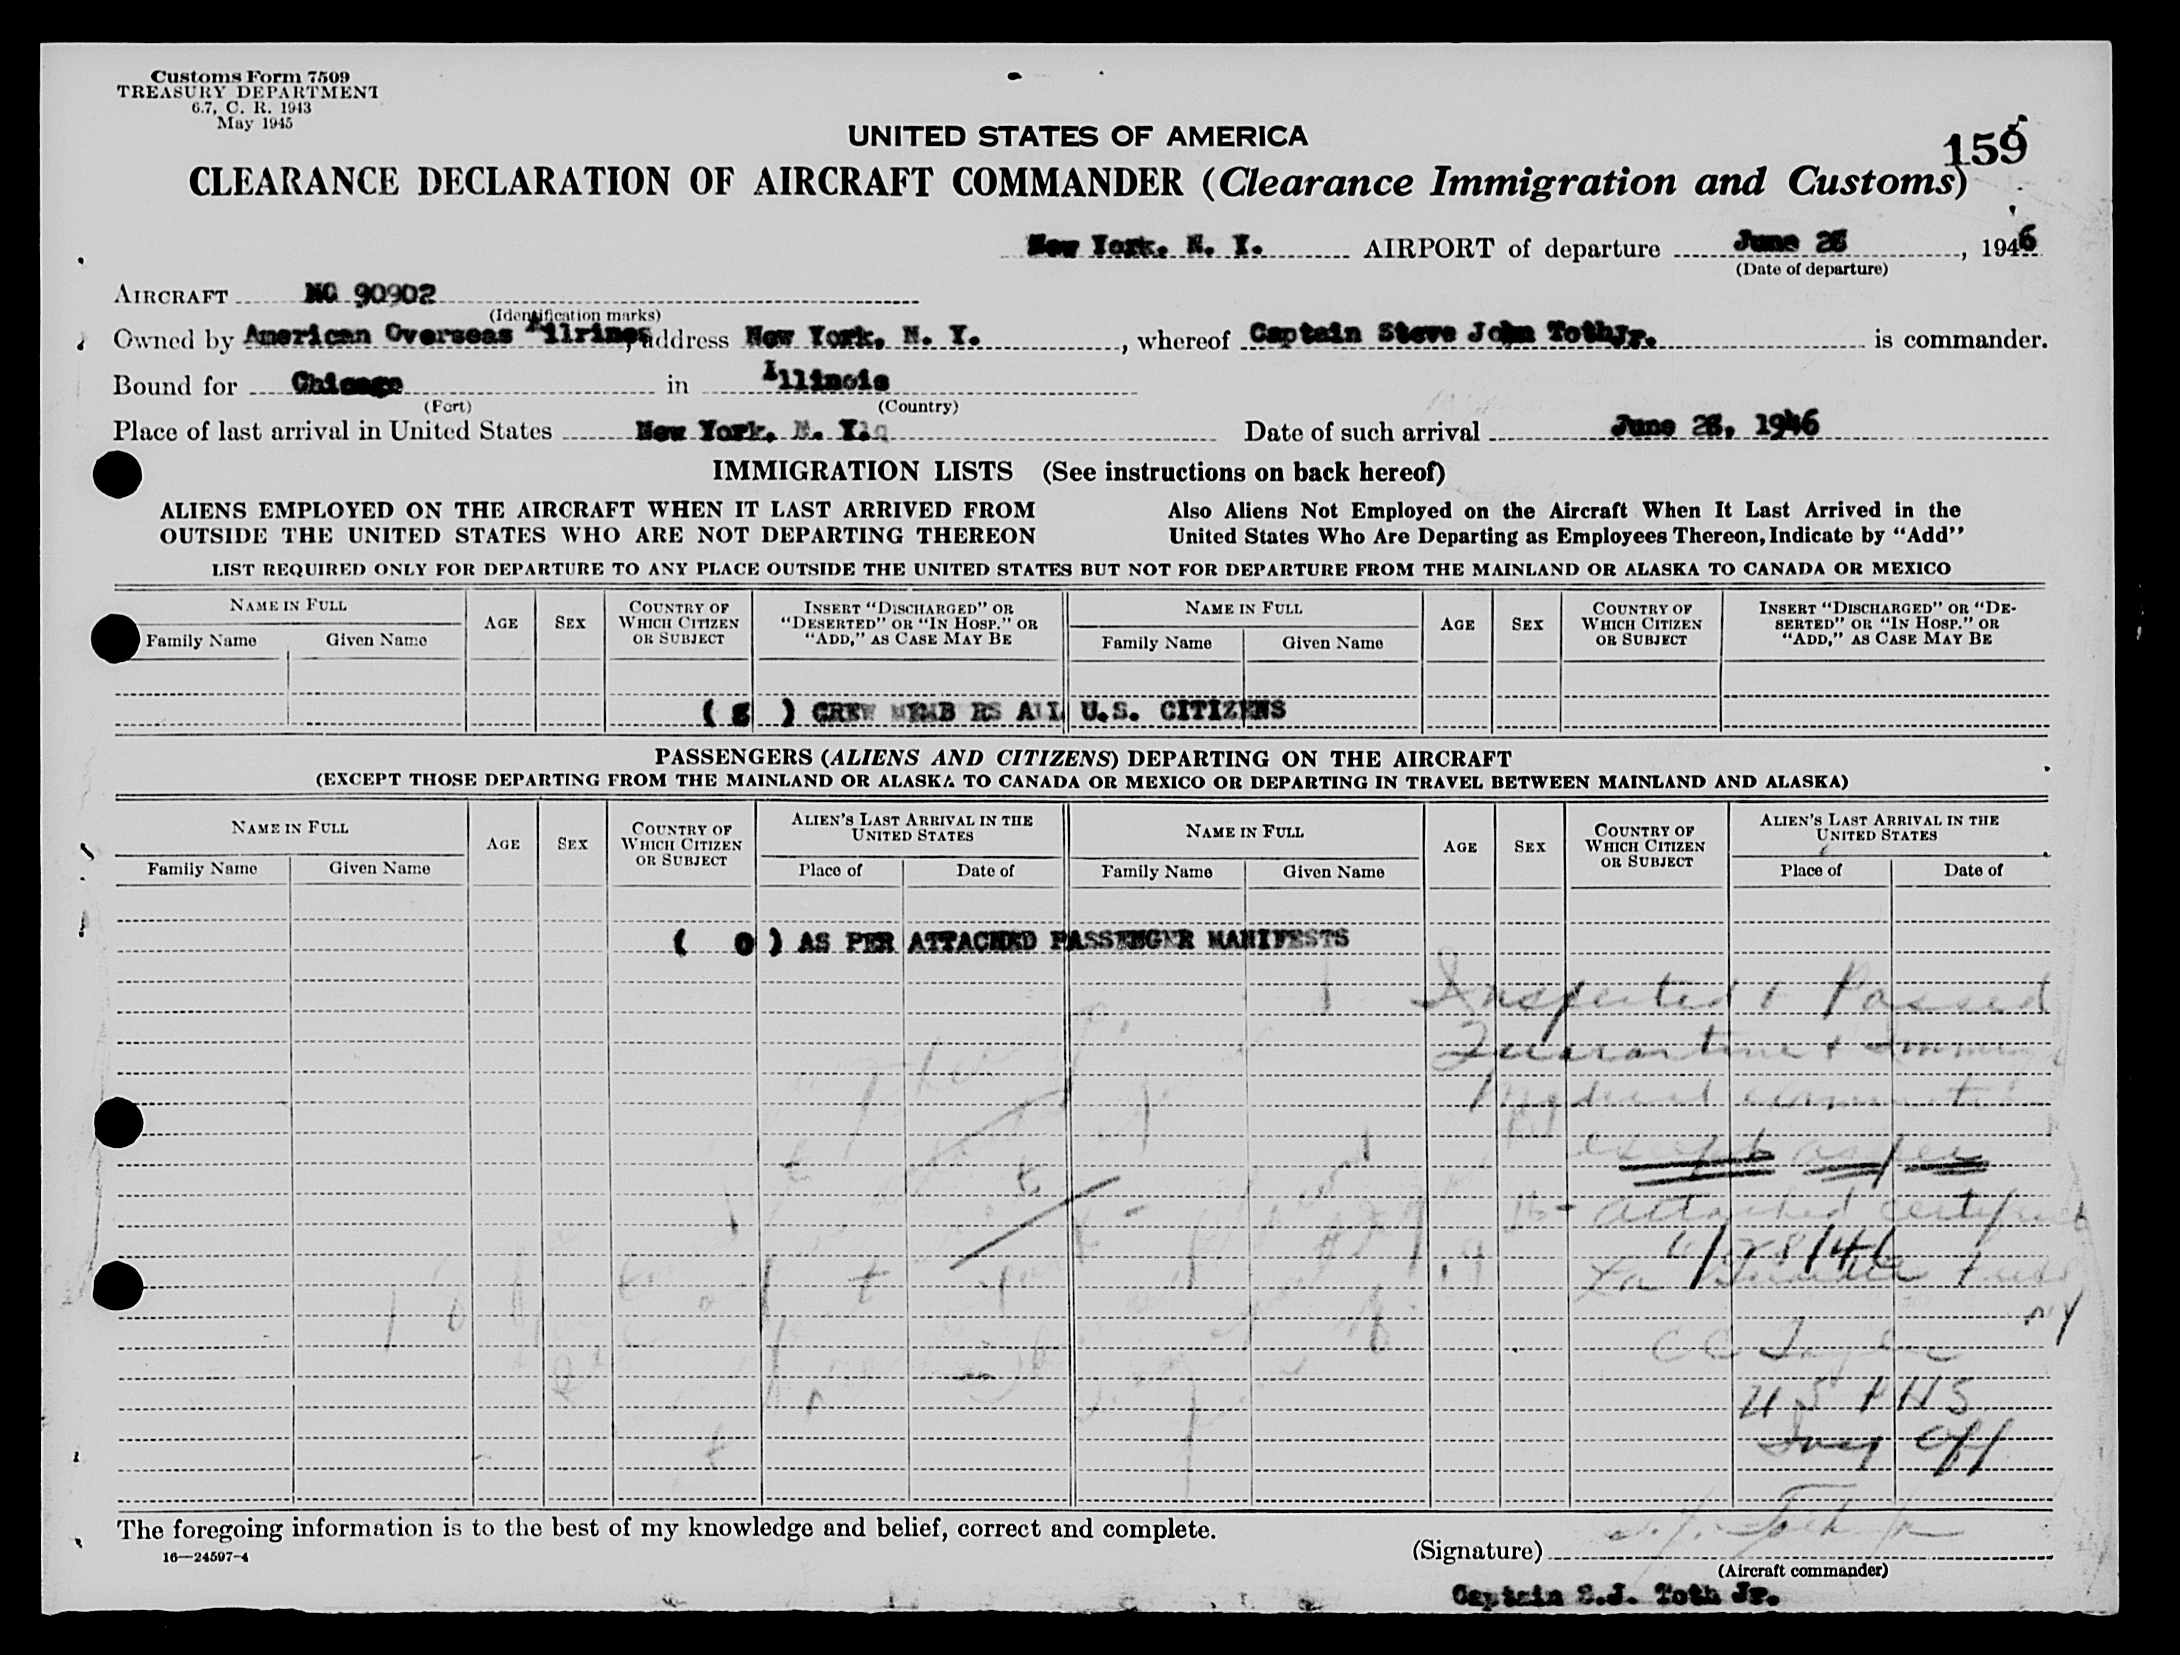 Customs Form 7509
TREASURY DEPARTMENT
6.7, C. R. 1943
May 1945
UNITED STATES OF AMERICA
159
CLEARANCE DECLARATION OF AIRCRAFT COMMANDER (Clearance Immigration and Customs)
New York, N. Y. AIRPORT of departure June 28, 1946
(Date of departure)
AIRCRAFT NC 90902
(Identification marks)
Owned by American Overseas Ailrines, address New York, N. Y., whereof Captain Steve John Toth Jr. is commander.
Bound for Chicago in Illinois
(Port) (Country)
Place of last arrival in United States New York, N. Y. Date of such arrival June 28, 1946
IMMIGRATION LISTS (See instructions on back hereof)
ALIENS EMPLOYED ON THE AIRCRAFT WHEN IT LAST ARRIVED FROM
OUTSIDE THE UNITED STATES WHO ARE NOT DEPARTING THEREON
Also Aliens Not Employed on the Aircraft When It Last Arrived in the
United States Who Are Departing as Employees Thereon, Indicate by "Add"
LIST REQUIRED ONLY FOR DEPARTURE TO ANY PLACE OUTSIDE THE UNITED STATES BUT NOT FOR DEPARTURE FROM THE MAINLAND OR ALASKA TO CANADA OR MEXICO
NAME IN FULL
Family Name Given Name
AGE
SEX
COUNTRY OF
WHICH CITIZEN
OR SUBJECT
INSERT "DISCHARGED" OR
"DESERTED" OR "IN HOSP." OR
"ADD," AS CASE MAY BE
NAME IN FULL
Family Name Given Name
AGE
SEX
COUNTRY OF
WHICH CITIZEN
OR SUBJECT
INSERT "DISCHARGED" OR "DE-
SERTED" OR "IN HOSP." OR
"ADD," AS CASE MAY BE
( 8 ) CREW MEMB RS ALL U.S. CITIZENS
PASSENGERS (ALIENS AND CITIZENS) DEPARTING ON THE AIRCRAFT
(EXCEPT THOSE DEPARTING FROM THE MAINLAND OR ALASKA TO CANADA OR MEXICO OR DEPARTING IN TRAVEL BETWEEN MAINLAND AND ALASKA)
NAME IN FULL
Family Name Given Name
AGE
SEX
COUNTRY OF
WHICH CITIZEN
OR SUBJECT
ALIEN'S LAST ARRIVAL IN THE
UNITED STATES
Place of Date of
NAME IN FULL
Family Name Given Name
AGE
SEX
COUNTRY OF
WHICH CITIZEN
OR SUBJECT
ALIEN'S LAST ARRIVAL IN THE
UNITED STATES
Place of Date of
( 0 ) AS PER ATTACHED PASSENGER MANIFESTS
Inspected & Passed
Quarantine &
Medical
except as per
attached
6/28/46
La Guardia
NY
CC Taylor
USPHS
Insp Off
The foregoing information is to the best of my knowledge and belief, correct and complete.
16—24597-4
(Signature) S. J. Toth Jr
(Aircraft commander)
Captain S.J. Toth Jr.